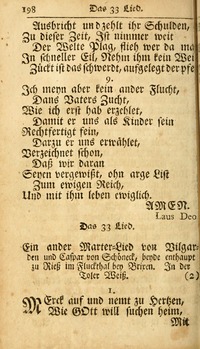 198 Das 33 Lied.
Ausbricht und zehlt ihr Schulden,
Zu dieser Zeit, Ist nimmer weit
Der Welte Plag, flieh wer da ma
In schneller Eil, Nehm ihm kein Wei
Zückt ist das schwerdt, aufgelegt der pfe
9.
Ich meyn aber kein ander Flucht,
Dans Vaters Zucht,
Wie ich erst hab erzehlet,
Damit er uns als Kinder sein
Rechtfertiget fein,
Darzu er uns erwählet,
Verzeichnet schon,
Daß wir daran
Seyen vergwißt, ohn arge List
Zum ewigen Reich,
Und mit ihm leben ewiglich.
AMEN.
Laus Deo
Das 33 Lied.
Ein ander Marter-Lied von Vilgar-
den und Caspar von Schöneck, beyde enthaupt
zu Nieß im Fluckthal bey Brixen. In der
Toler Weiß. (2)
1.
Merck auf und nemt zu Hertzen,
Wie GOtt will suchen heim,
Mit